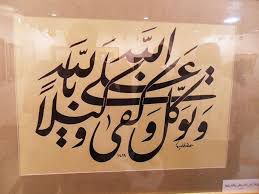 وَتَوَكَّلْ عَلَى اللَّهِ وَكَفَى بِاللَّهِ وَكِيلًا